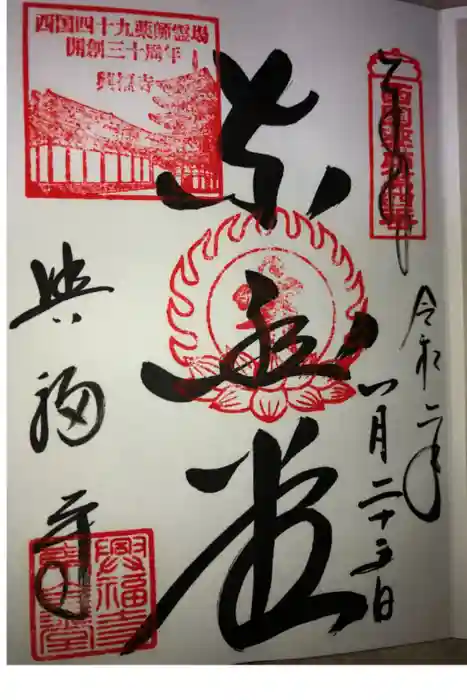 西国四十九薬師霊場
開創三十周年
興福寺
奉拝
令和二年
八月二十五日
東金堂
興福寺
興福寺